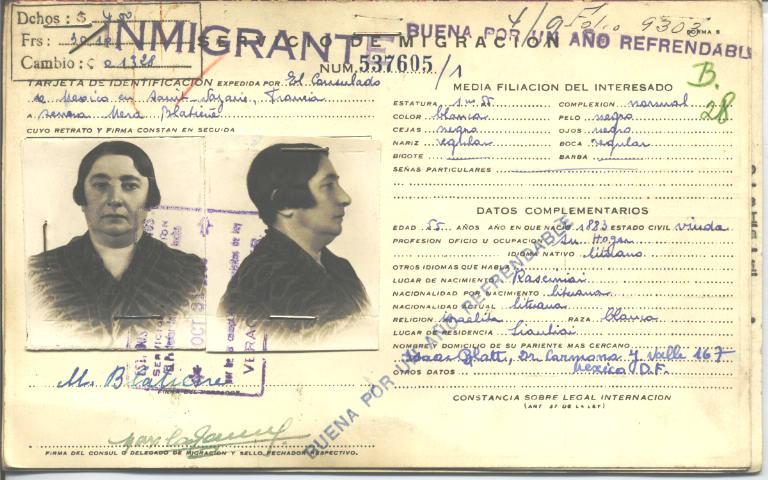 Dchos: $ 400
Frs:
Cambio:
INMIGRANTE
SERVICIO DE MIGRACION
BUENA POR UN AÑO REFRENDABLE
Folio 9302
FORMA 5
NUM. 537605 /1
TARJETA DE IDENTIFICACION EXPEDIDA POR El Consulado
de Mexico en Saint-Nazaire, Francia
a señora Mera Blatiene
CUYO RETRATO Y FIRMA CONSTAN EN SEGUIDA
B.
28
MEDIA FILIACION DEL INTERESADO
ESTATURA 1 m 55 COMPLEXION normal
COLOR blanca PELO negro
CEJAS negra OJOS negro
NARIZ regular BOCA regular
BIGOTE BARBA
SEÑAS PARTICULARES
DATOS COMPLEMENTARIOS
EDAD 55 AÑOS AÑO EN QUE NACIO 1883 ESTADO CIVIL viuda
PROFESION OFICIO U OCUPACION su Hogar
IDIOMA NATIVO lituano
OTROS IDIOMAS QUE HABLA
LUGAR DE NACIMIENTO Raseiniai
NACIONALIDAD POR NACIMIENTO lituana
NACIONALIDAD ACTUAL lituana
RELIGION israelita RAZA blanca
LUGAR DE RESIDENCIA Siauliai
NOMBRE Y DOMICILIO DE SU PARIENTE MAS CERCANO
Isaac Blatt, Dr Carmona y Valle 167
OTROS DATOS Mexico D.F.
CONSTANCIA SOBRE LEGAL INTERNACION
(ART 57 DE LA LEY)
BUENA POR UN AÑO REFRENDABLE
OCT
VERA
M. Blatiene
FIRMA DEL PORTADOR
FIRMA DEL CONSUL O DELEGADO DE MIGRACION Y SELLO FECHADOR RESPECTIVO.